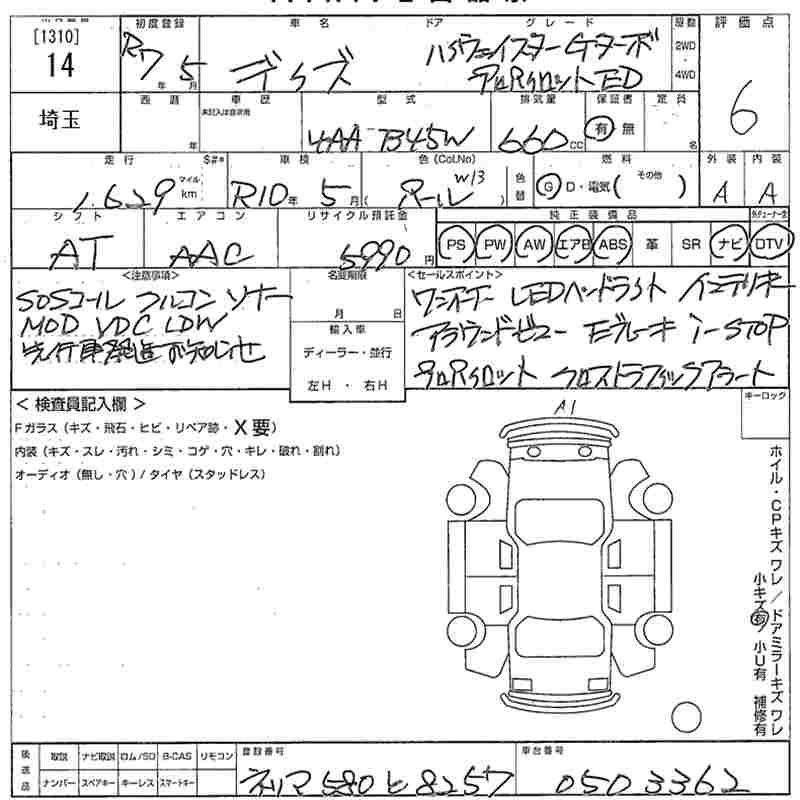 初度登録 車名 ドア グレード 駆動 評価点
[1310]
14
R7年 5月
デイズ
ハイウェイスターGターボ
プロパイロットED
2WD
4WD
6
埼玉
西暦 車歴 型式 排気量 保証書 定員
未記入は自家用
年
4AA-B45W
660cc
有 無
名
走行 $#* 車検 色(Col.No) 燃料 外装 内装
1,629 マイル km
R10年 5月
パール W13
色替
G D・電気( その他 )
A A
シフト エアコン リサイクル預託金 純正装備品
AT AAC 5990円
PS PW AW エアB ABS 革 SR ナビ DTV
<注意事項>
SOSコール フルコン ソナー
MOD VDC LDW
先行車発進お知らせ
名変期限
月 日
輸入車
ディーラー・並行
左H ・ 右H
<セールスポイント>
ワンオーナー LEDヘッドライト インテリキー
アラウンドビュー Eブレーキ i-STOP
プロパイロット クロストラフィックアラート
< 検査員記入欄 >
Fガラス(キズ・飛石・ヒビ・リペア跡・X要)
内装(キズ・スレ・汚れ・シミ・コゲ・穴・キレ・破れ・割れ)
オーディオ(無し・穴)/タイヤ(スタッドレス)
A1
キーロック
ホイル・CPキズ ワレ / ドアミラーキズ ワレ
小キズ有 小U有 補修有
後送品
取説 ナビ取説 ロム/SD B-CAS リモコン
ナンバー スペアキー キーレス スマートキー
登録番号
ネリマ 580 と 8257
車台番号
0503362